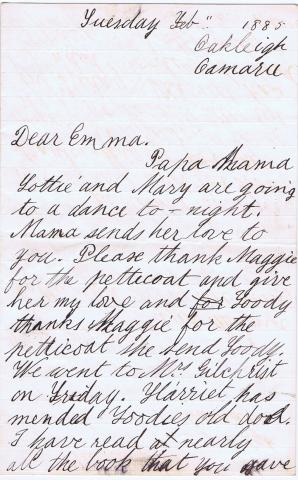 Tuesday Feb" 1885
Oakleigh
Oamaru
Dear Emma.
Papa Mama
Lottie and Mary are going
to a dance to-night.
Mama sends her love to
you. Please thank Maggie
for the petticoat and give
her my love and for Toody
thanks Maggie for the
petticoat she send Toody.
We went to Mrs Gilchrist
on Friday. Harriet has
mended Toodies old dod.
I have read at nearly
all the book that you gave